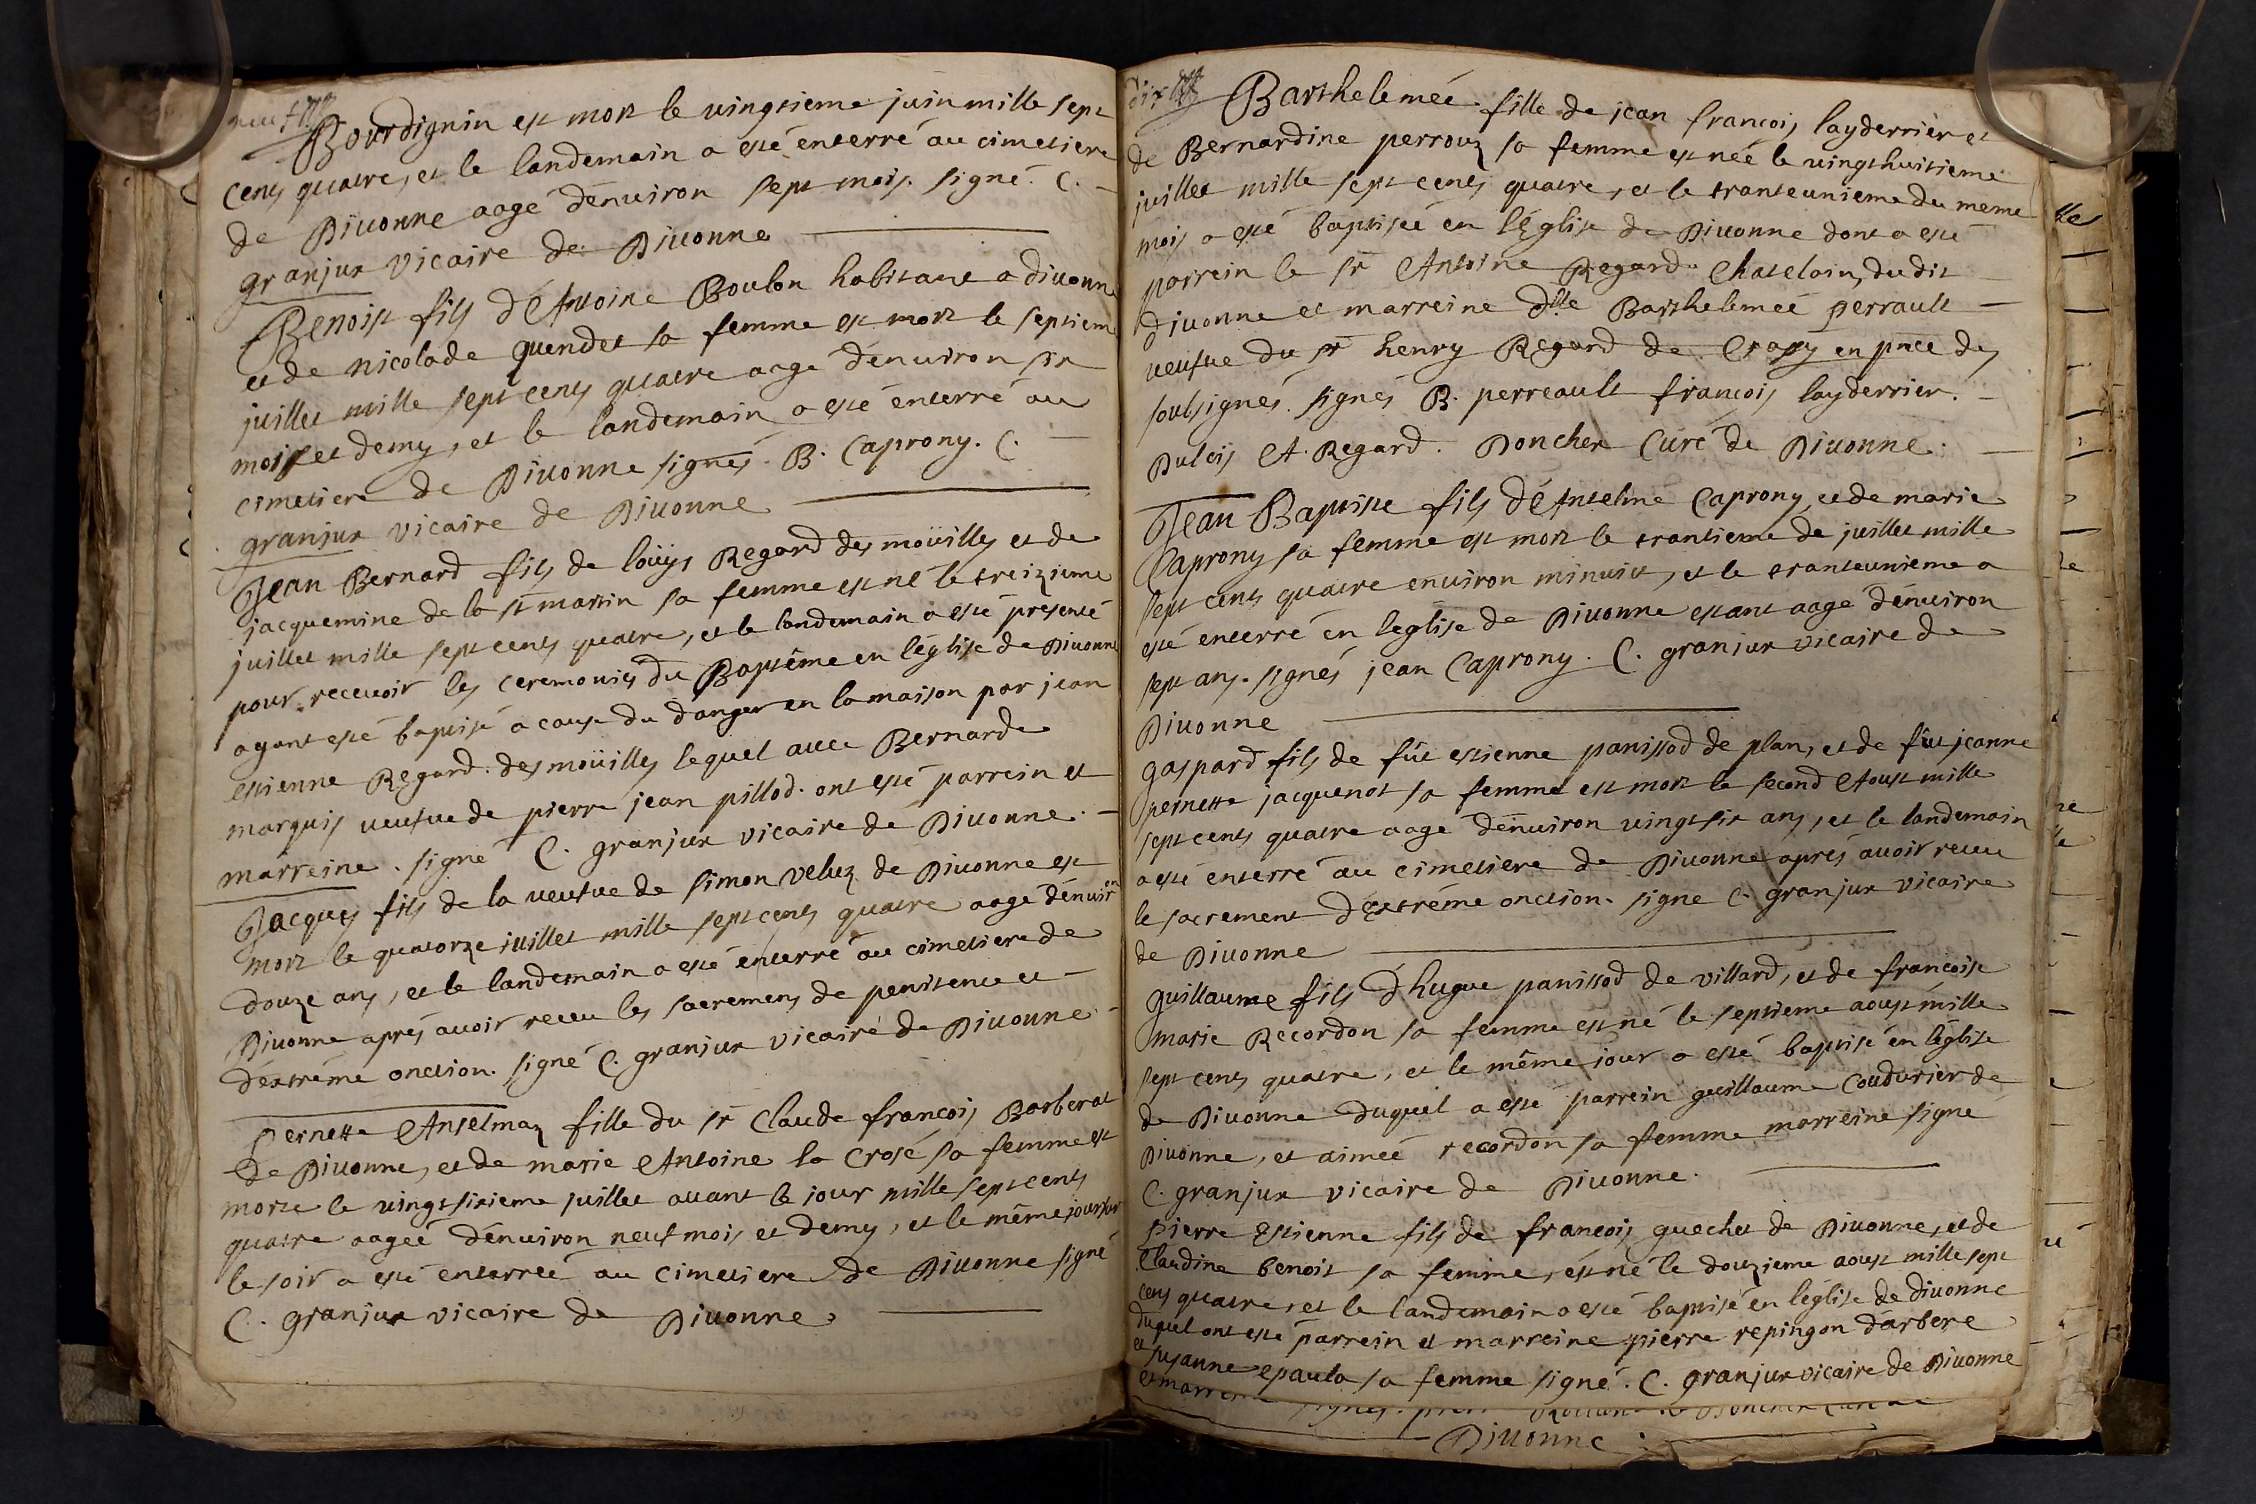 Bourdignin est mort le vingtieme juin mille sept
cents quatre, et le landemain a esté enterré au cimetiere
de Divonne aagé dénviron sept mois. signé. C. —
granjux vicaire de Divonne
Benoist fils d'Antoine Boulon habitant a divonne
et de nicolade quendet sa femme est mort le septieme
juillet mille sept cents quatre aagé dénviron six
mois et demy, et le landemain a esté énterré au
cimetiere de Divonne signés. B. Caprony. C. —
granjux vicaire de Divonne
Jean Bernard fils de loüys Regard des moüilles et de
jacquemine de la st martin sa femme est né le treizieme
juillet mille sept cents quatre, et le landemain a esté presenté
pour recevoir les ceremonies du Baptéme en l'église de Divonne
ayant esté baptisé a cause du danger en la maison par jean
estienne Regard des moüilles lequel avec Bernarde
marquis veufve de pierre jean pillod ont esté parrein et
marreine. signé C. granjux vicaire de Divonne. —
Jacques fils de la veufve de simon veluz de Divonne est
mort le quatorze juillet mille sept cents quatre aagé dénviron
douze ans, et le landemain a esté énterré au cimetiere de
Divonne aprés avoir receu les sacremens de penitence et —
déxtréme onction. signé C. granjux vicaire de Divonne —
Pernette Anselmaz fille du sr Claude françois Barberat
de Divonne, et de marie Antoine la Crosé sa femme est
morte le vingtsixieme juillet avant le jour mille sept cents
quatre aageé dénviron neuf mois et demy, et le même jour sur
le soir a esté enterreé au cimetiere de Divonne signé
C. granjux vicaire de Divonne.
Barthelemeé fille de jean françois layderrier et
de Bernardine perrouz sa femme est néé le vingthuitieme
juillet mille sept cents quatre, et le tranteunieme du meme
mois a esté baptiseé en l'Église de Divonne dont a esté
parrein le sr Antoine Regard Chatelain dudit
divonne et marreine dlle Barthelemeé perrault —
veufve du sr henry Regard de Crassy en pnce des
soulsignés. signés B. perreault françois layderrier. —
Dulcis A. Regard. Doncher Curé de Divonne. —
Jean Baptiste fils d'Anselme Caprony, et de marie
Caprony sa femme est mort le trantieme de juillet mille
sept cents quatre environ minuict, et le tranteunieme a
esté enterré én leglise de Divonne estant aagé dénviron
sept ans. signés jean Caprony. C. granjux vicaire de
Divonne
gaspard fils de fût estienne panissod de plan, et de fût jeanne
pernette jacquenot sa femme est mort le second Aoust mille
sept cents quatre aagé dénviron vingtsix ans, et le landemain
a esté enterré au cimetiere de Divonne aprés avoir receu
le sacrement d'extréme onction. signé C. granjux vicaire
de Divonne
guillaume fils d'hugue panissod de villard, et de françoise
marie Recordon sa femme est né le septieme aoust mille
sept cents quatre, et le même jour a esté baptisé én l'église
de Divonne duquel a esté parrein guillaume Coudurier de
Divonne, et aimeé recordon sa femme marreine signé
C. granjux vicaire de Divonne.
Pierre Estienne fils de françois guechet de Divonne, et de
Claudine benoit sa femme, ést né le douzieme aoust mille sept
cens quatre, et le landemain a esté baptisé én l'église de divonne
duquel ont esté parrein et marreine pierre repingon d'arbere
et susanne epaula sa femme signé. C. granjux vicaire de Divonne
Divonne